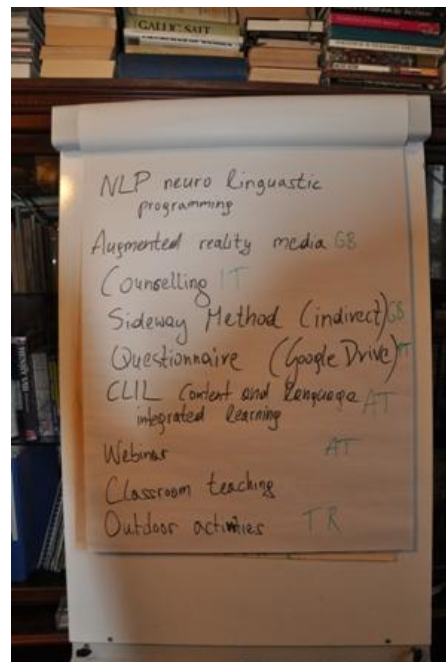 GALLIC SALT
NLP neuro linguastic
programming
Augmented reality media GB
Counselling IT
Sideway Method (indirect) GB
Questionnaire (Google Drive)
CLIL Content and Language
integrated learning AT
Webinar AT
Classroom teaching
Outdoor activities TR